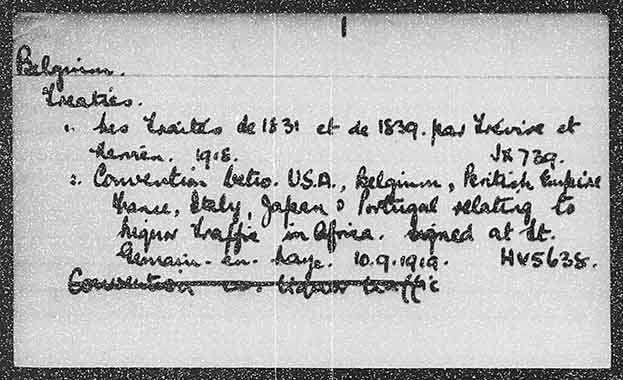 1
Belgium.
Treaties.
1. Les Traités de 1831 et de 1839. par Trévire et
Nerrèn. 1918. JX 739.
2. Convention betw. U.S.A., Belgium, British Empire
France, Italy, Japan & Portugal relating to
liquor traffic in Africa. Signed at St.
Germain-en-Laye. 10.9.1919. HV5638.
Convention liquor traffic